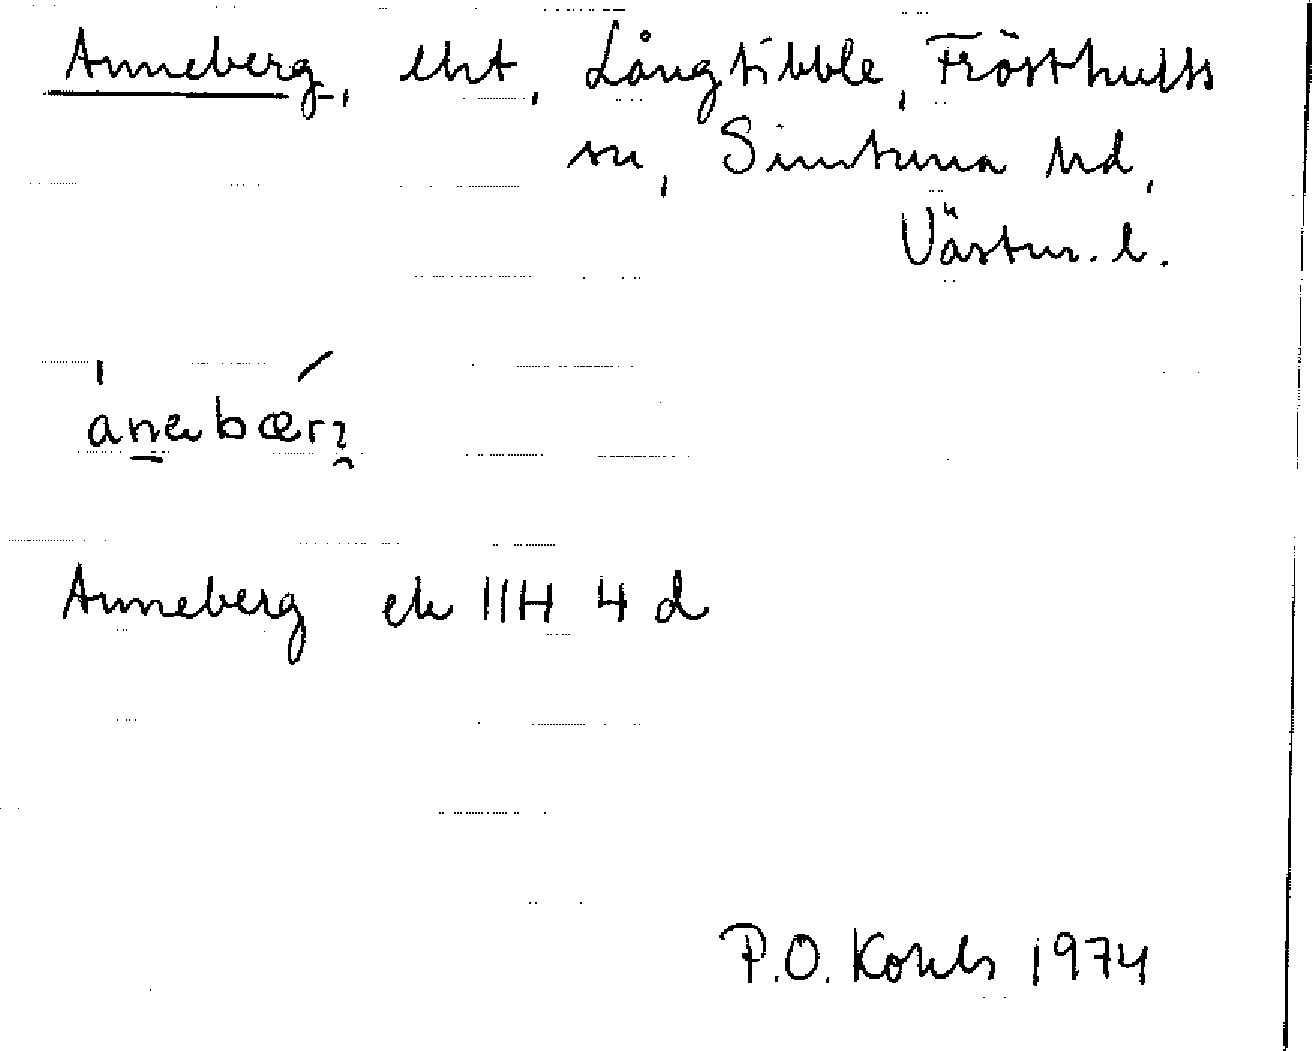 Anneberg, lht, Långtibble, Frösthults
sn, Simtuna hd,
Västm. l.
Anneberg ek 11H 4 d
P.O. Kohls 1974